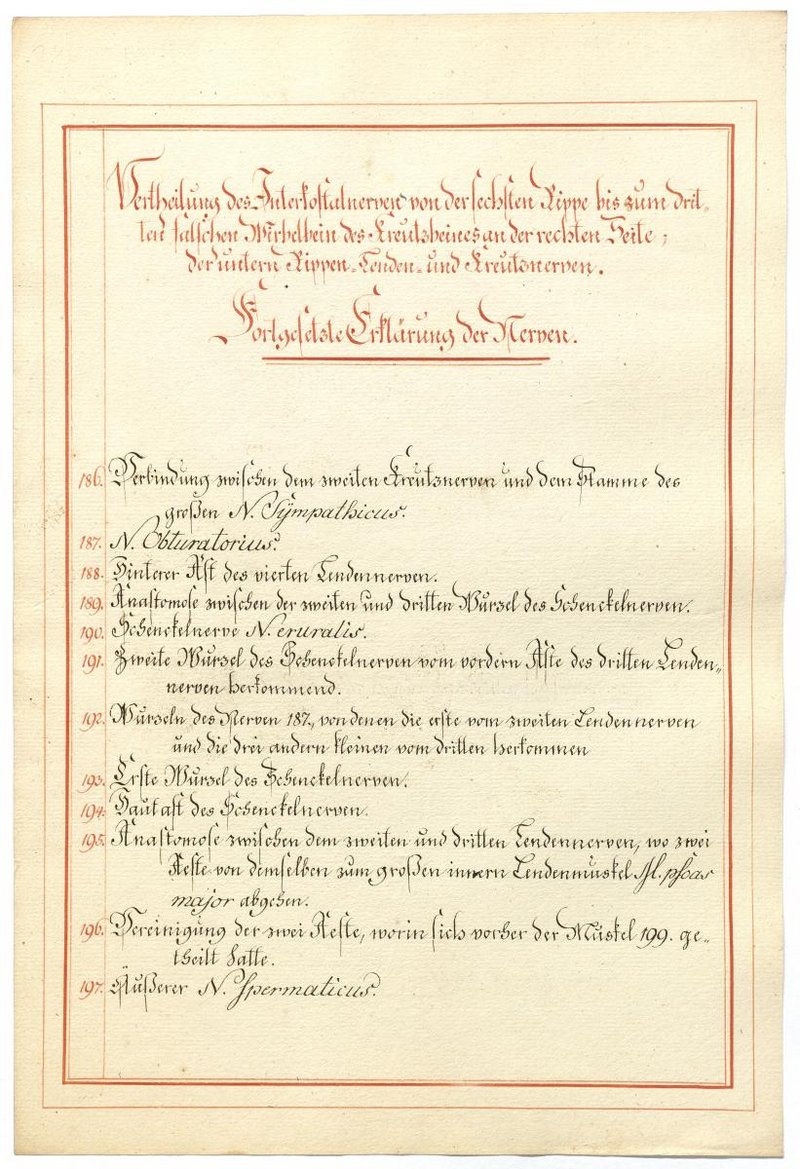 Vertheilung des Interkostalnerven von der sechsten Rippe bis zum drit-
ten falschen Wirbelbein des Kreutzbeines an der rechten Seite,
der untern Rippen- Lenden- und Kreutznerven.
Fortgesetzte Erklärung der Nerven.
186. Verbindung zwischen dem zweiten Kreutznerven und dem Stamme des
großen N. Sÿmpathicus.
187. N. Obturatorius.
188. Hinterer Ast des vierten Lendennerven.
189. Anastomose zwischen der zweiten und dritten Wurzel des Schenckelnerven.
190. Schenckelnerve N. cruralis.
191. Zweite Wurzel des Schenckelnerven vom vordern Aste des dritten Lenden-
nerven herkommend.
192. Wurzeln des Nerven 187., von denen die erste vom zweiten Lendennerven
und die drei andern kleinen vom dritten herkommen
193. Erste Wurzel des Schenckelnerven.
194. Hautast des Schenckelnerven.
195. Anastomose zwischen dem zweiten und dritten Lendennerven, wo zwei
Aeste von demselben zum großen innern Lendenmuskel M. psoas
major abgehen.
196. Vereinigung der zwei Aeste, worin sich vorher der Muskel 199. ge-
theilt hatte.
197. Äußerer N. Spermaticus.